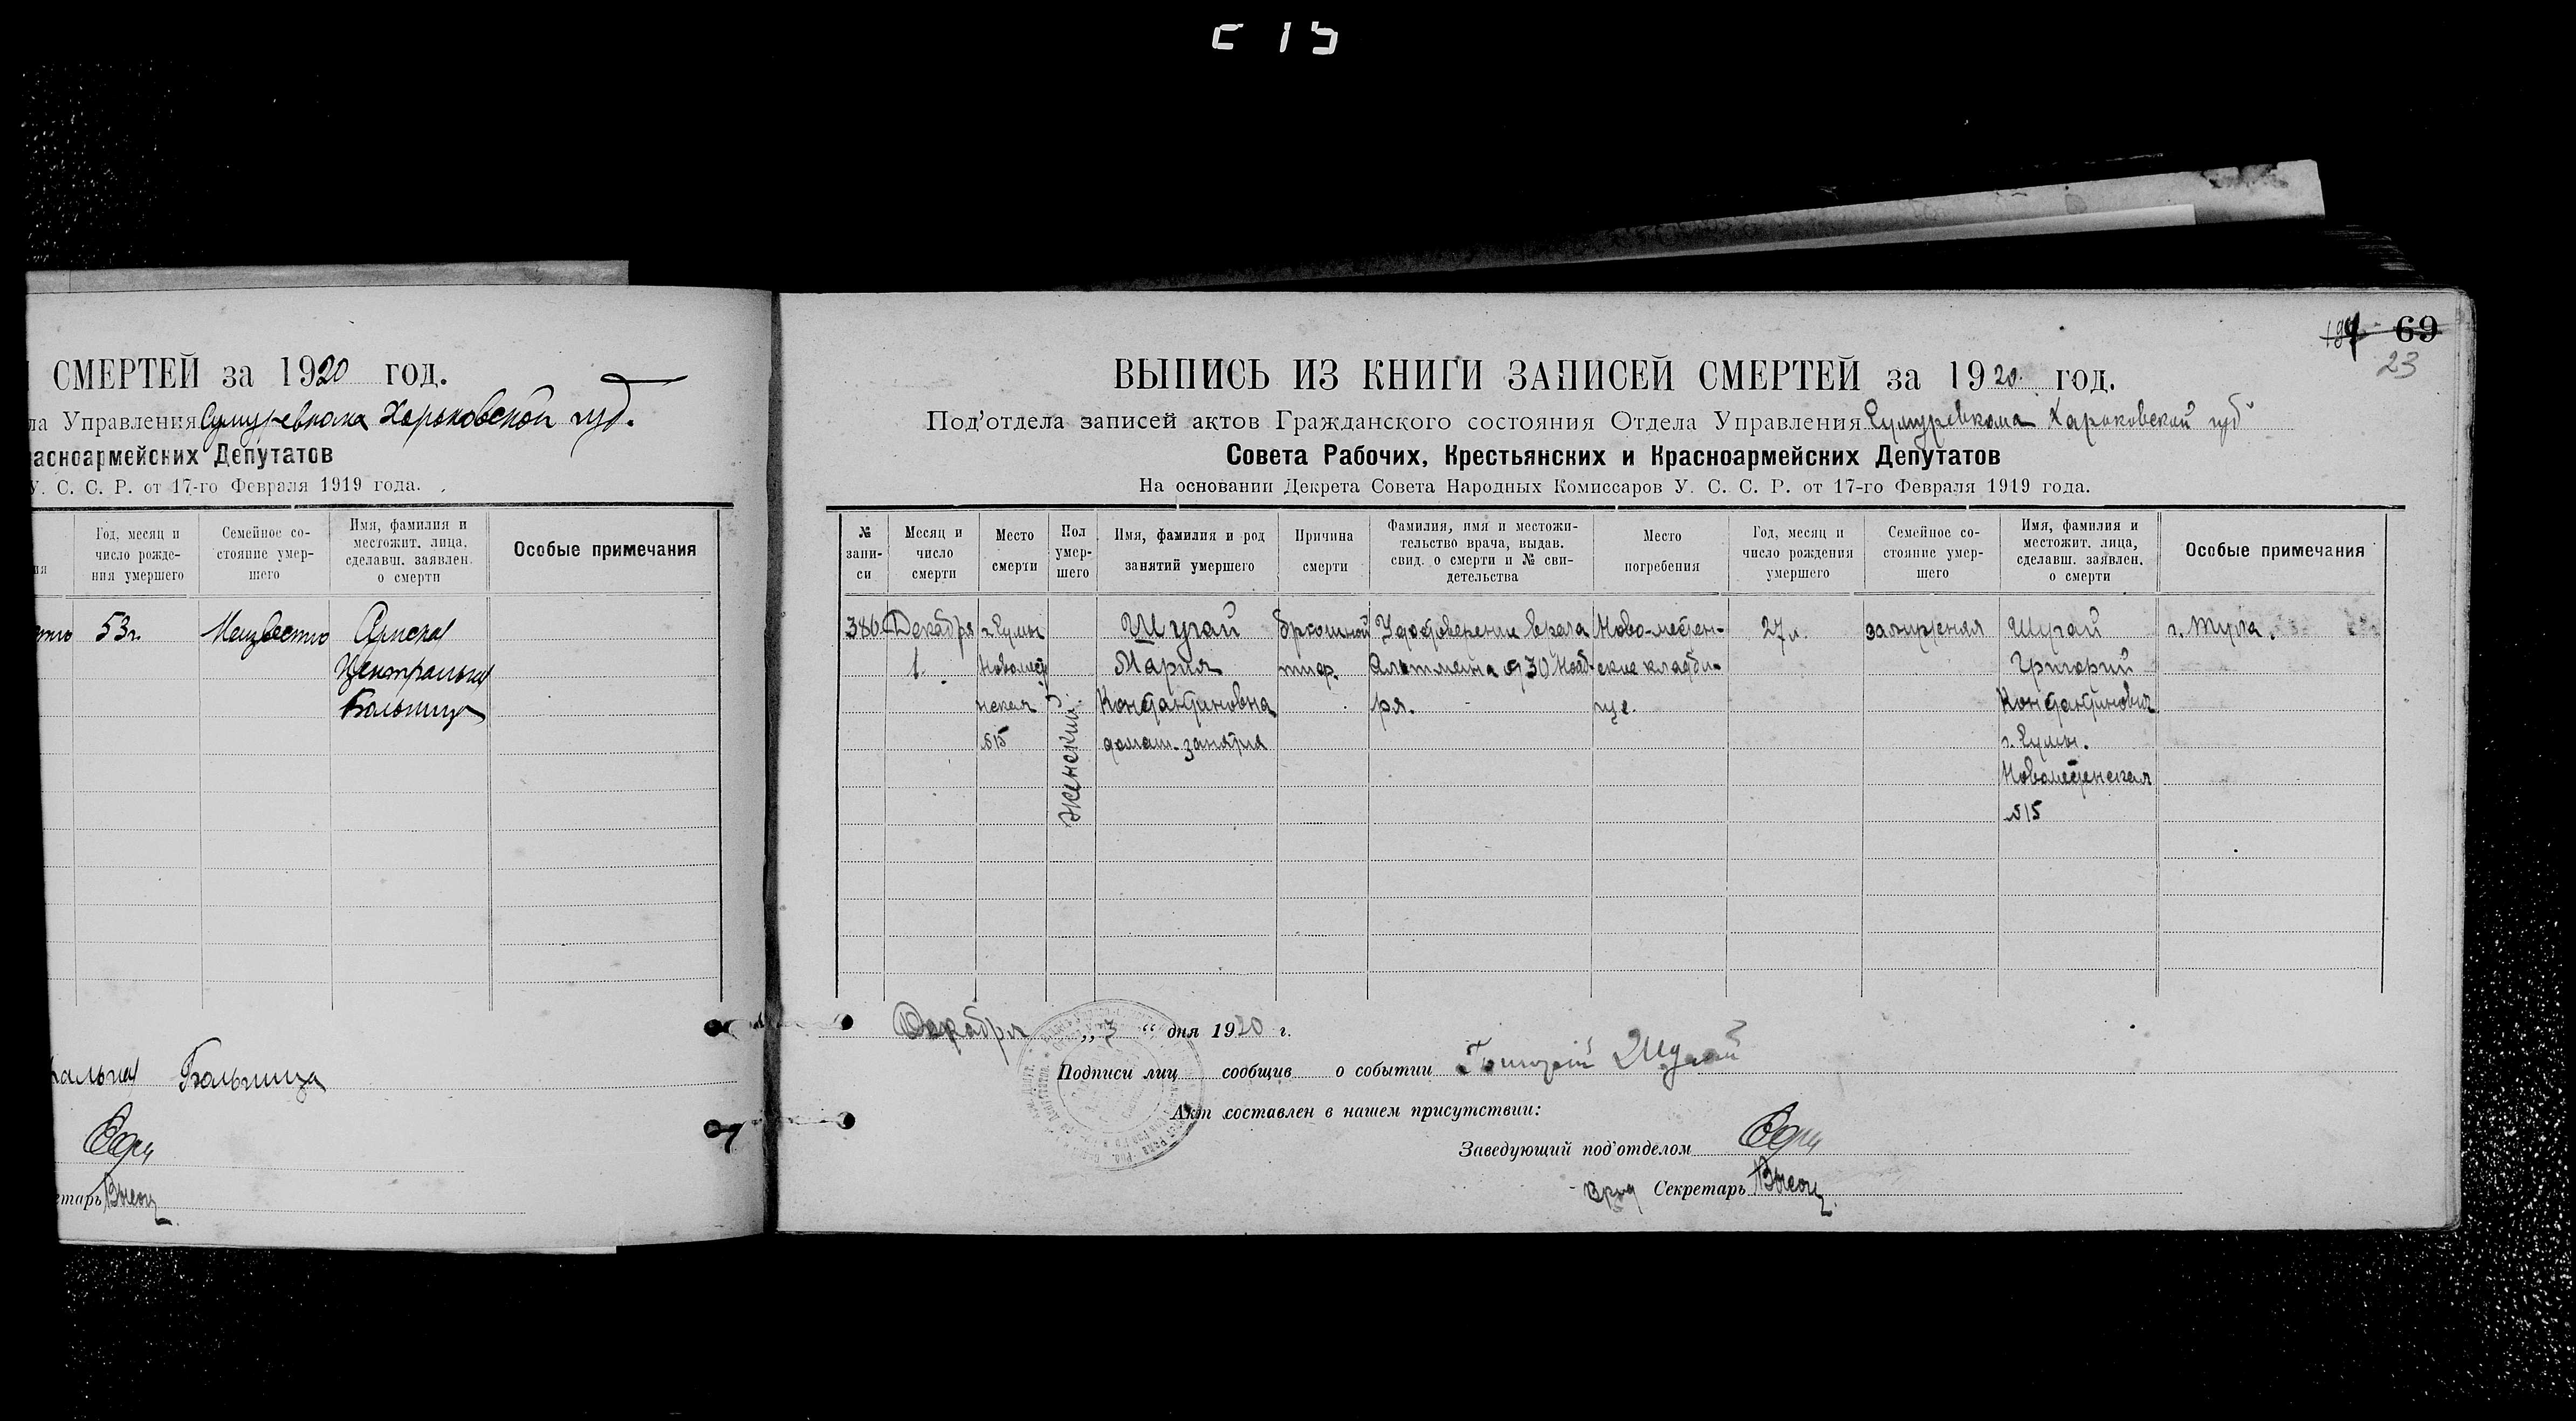 СМЕРТЕЙ за 1920 год.
ла Управления Сумуревкома Харьковской губ.
расноармейских Депутатов
У. С. С. Р. от 17-го Февраля 1919 года.
Год, месяц и
число рожде-
ния умершего
Семейное со-
стояние умер-
шего
Имя, фамилия и
местожит. лица,
сделавш. заявлен.
о смерти
Особые примечания
53 г.
Неизвестно
Больница
Больница
етарь
69
23
ВЫПИСЬ ИЗ КНИГИ ЗАПИСЕЙ СМЕРТЕЙ за 1920 год.
Под'отдела записей актов Гражданского состояния Отдела Управления Сумуревкома Харьковской губ
Совета Рабочих, Крестьянских и Красноармейских Депутатов
На основании Декрета Совета Народных Комиссаров У. С. С. Р. от 17-го Февраля 1919 года.
№
запи-
си
Месяц и
число
смерти
Место
смерти
Пол
умер-
шего
Имя, фамилия и род
занятий умершего
Причина
смерти
Фамилия, имя и местожи-
тельство врача, выдав.
свид. о смерти и № сви-
детельства
Место
погребения
Год, месяц и
число рождения
умершего
Семейное со-
стояние умер-
шего
Имя, фамилия и
местожит. лица,
сделавш. заявлен.
о смерти
Особые примечания
380
Декабря
1.
г. Сумы
Новомест
нская
№15
Женский
Шугай
Мария
Константиновна
домаш. занятия
брюшной
тиф.
Удостоверение врача
Альтмана от 30 Нояб-
ря.
Ново-местен-
ское кладби-
ще.
27 л.
замужняя
Шугай
Григорий
Константинович
г. Сумы.
Новоместенская
№15
Декабря „3“ дня 1920 г.
Подписи лиц сообщив о событии Григорій Шугай
Акт составлен в нашем присутствии:
Заведующий под'отделом
Врид Секретарь